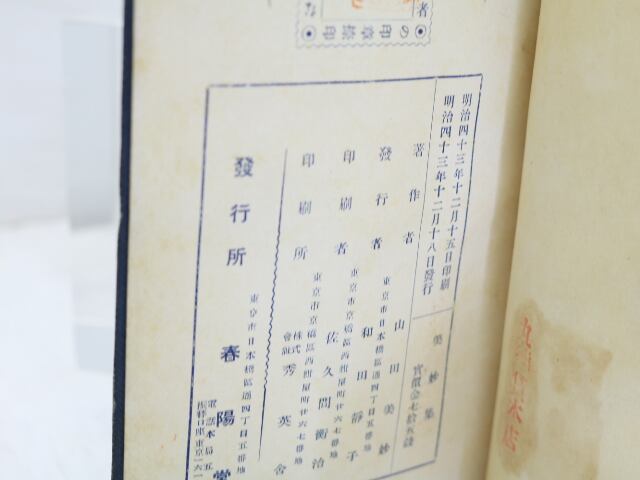 明治四十三年十二月十五日印刷
明治四十三年十二月十八日發行
美妙集
實價金七拾五錢
著作者 山田美妙
東京市日本橋區通四丁目五番地
發行者 和田靜子
東京市京橋區西紺屋町廿六七番地
印刷者 佐久間衡治
東京市京橋區西紺屋町廿六七番地
印刷所 株式會社 秀英舎
東京市日本橋區通四丁目五番地
發行所 春陽堂
電話本局五
振替口座東京一六一
者
の印章捺印
な